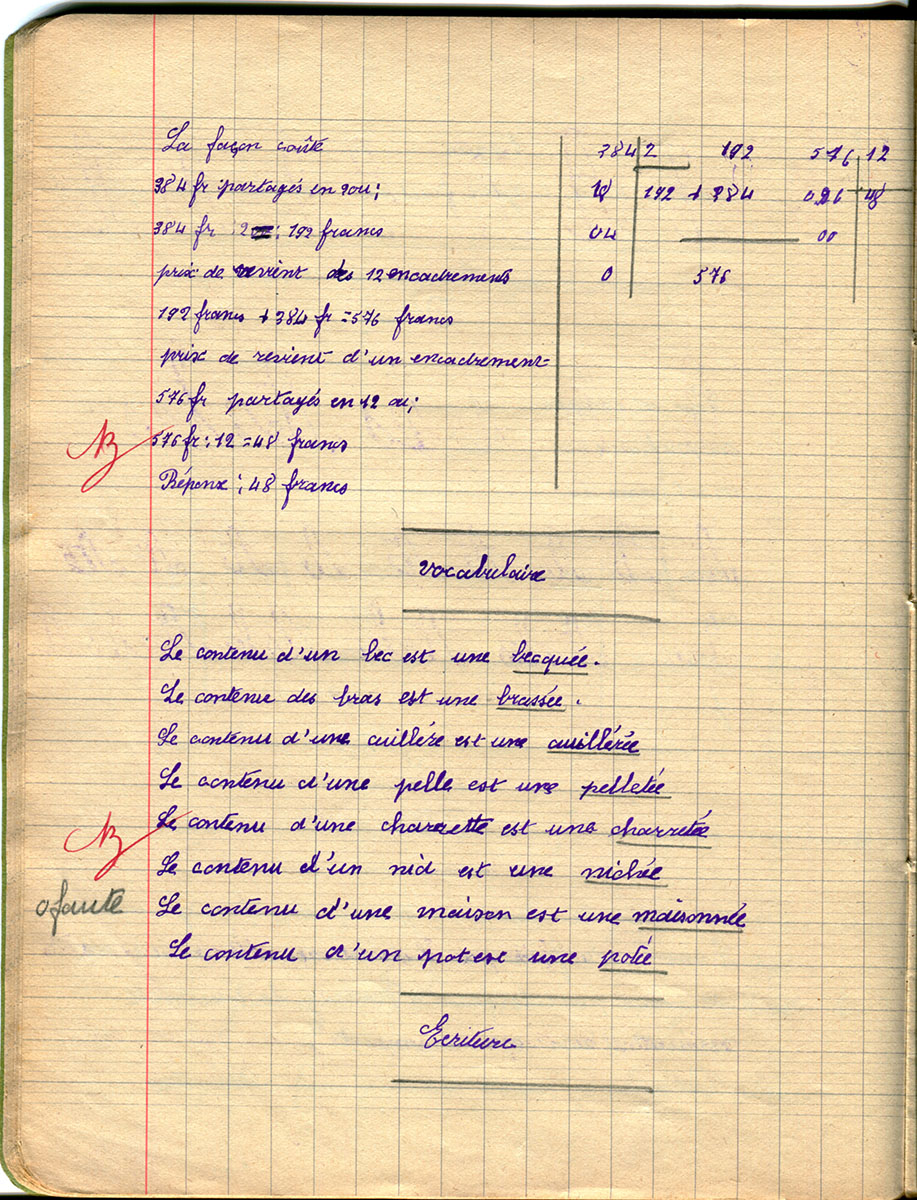 La façon coûte
384 fr partagés en 2 ou;
384 fr : 2 : 192 francs
prix de revient des 12 encadrements
192 francs + 384 fr = 576 francs
prix de revient d'un encadrement
576 fr partagés en 12 ou;
B 576 fr : 12 = 48 francs
Réponse : 48 francs
384 2 192 576 12
18 192 + 384 096 48
04 00
0 576
vocabulaire
Le contenu d'un bec est une becquée.
Le contenu des bras est une brassée.
Le contenu d'une cuillére est une cuillérée
Le contenu d'une pelle est une pelletée
B Le contenu d'une charrette est une charretée
Le contenu d'un nid est une nichée
0 faute Le contenu d'une maison est une maisonnée
Le contenu d'un pot est une potée
Ecriture